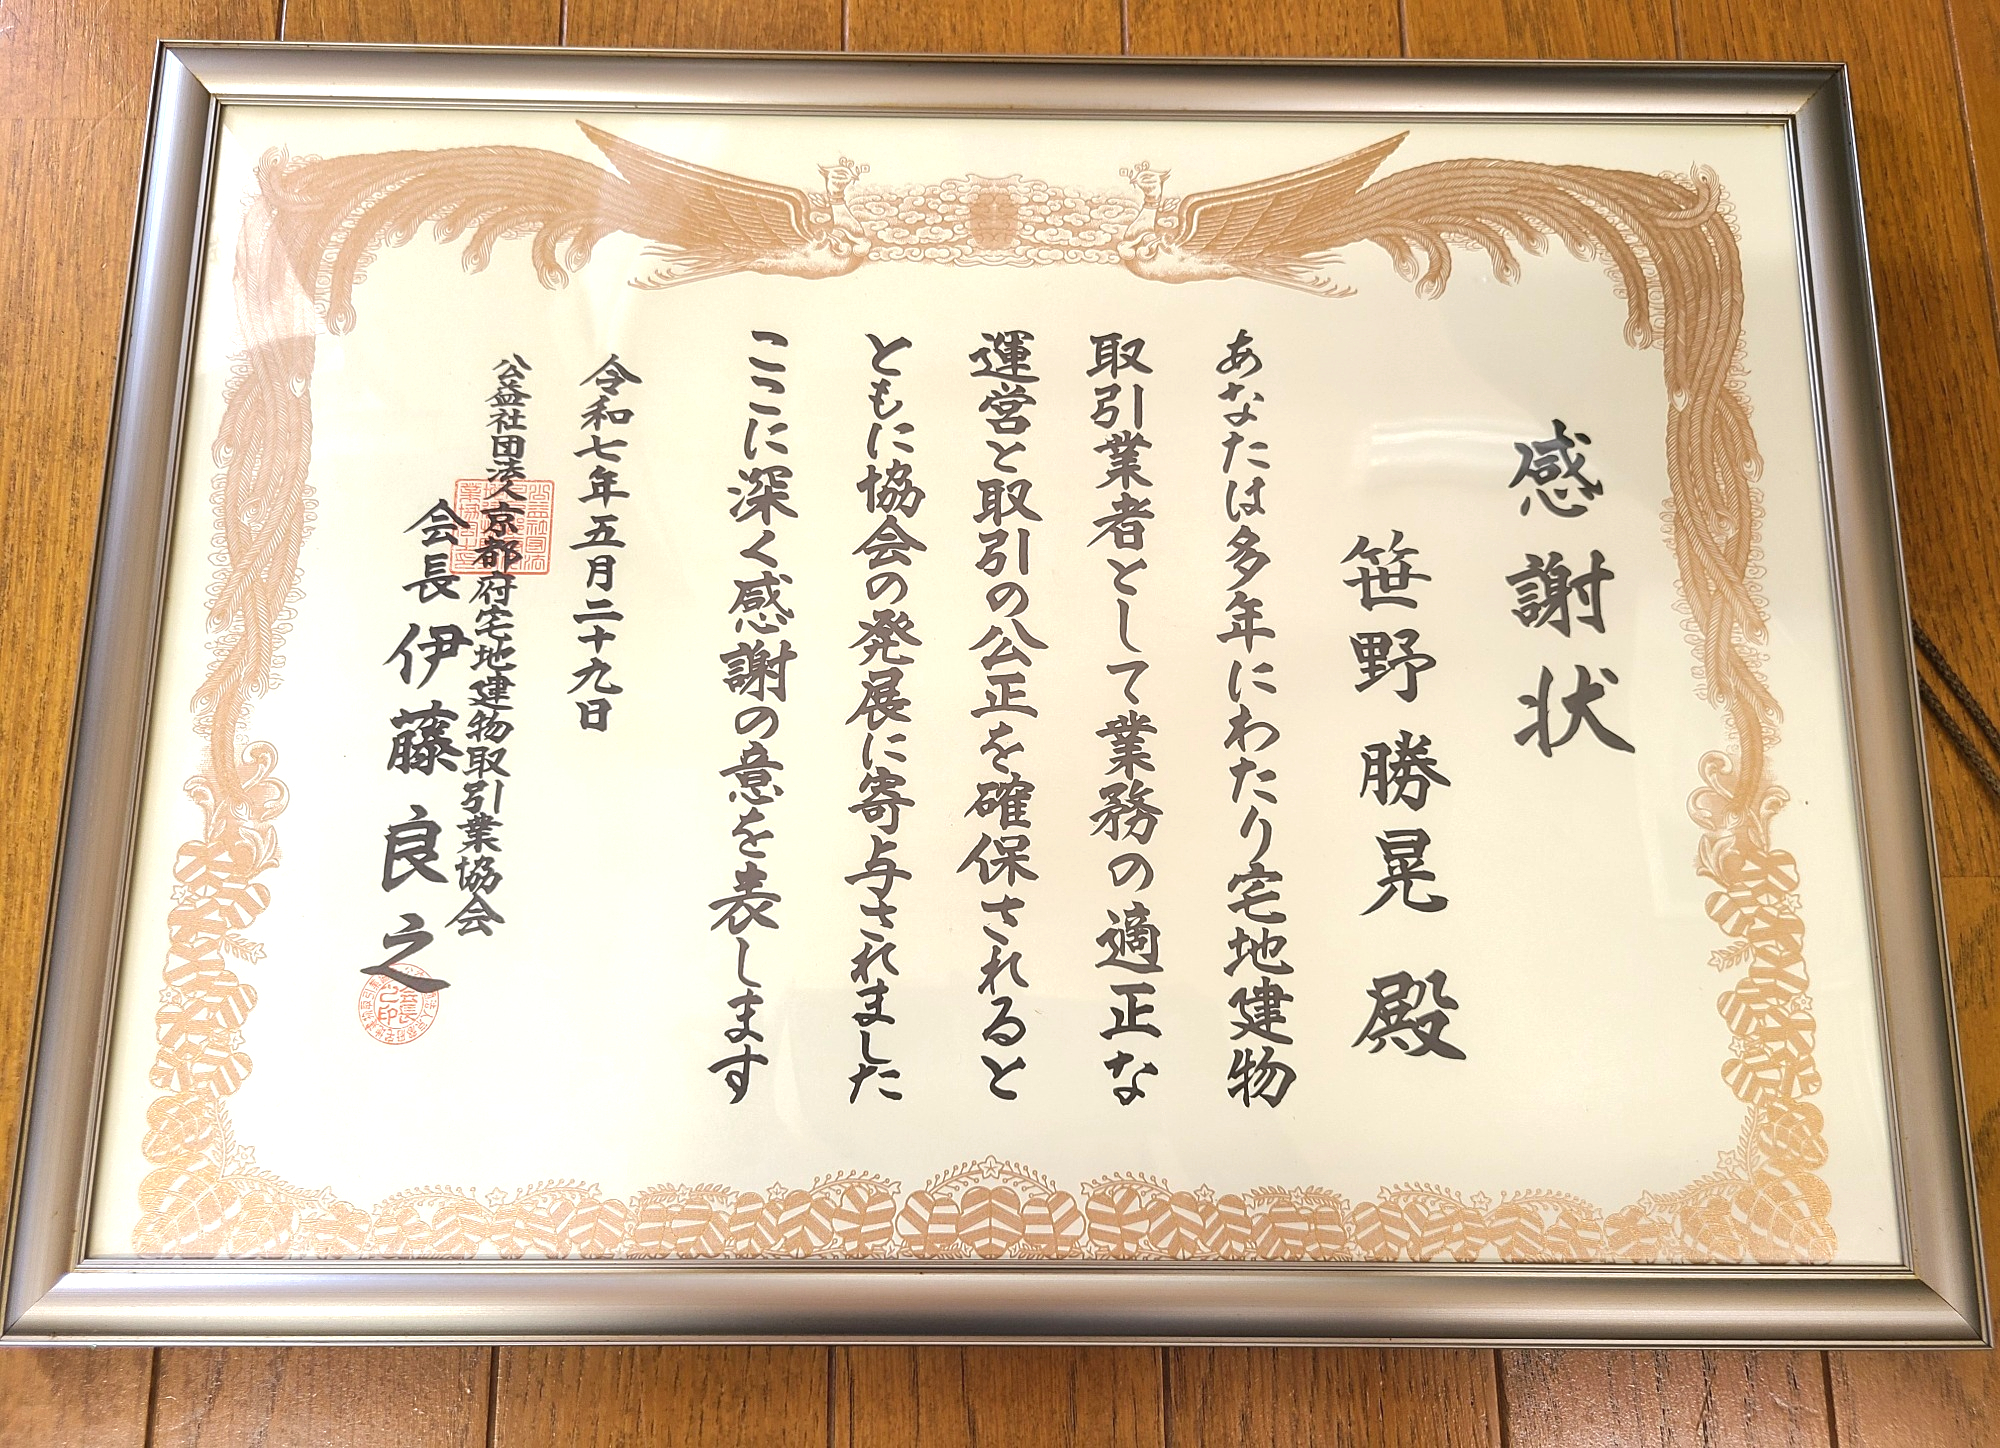 感謝状
笹野勝晃 殿
あなたは多年にわたり宅地建物
取引業者として業務の適正な
運営と取引の公正を確保されると
ともに協会の発展に寄与されました
ここに深く感謝の意を表します
令和七年五月二十九日
公益社団法人京都府宅地建物取引業協会
会長 伊藤良之